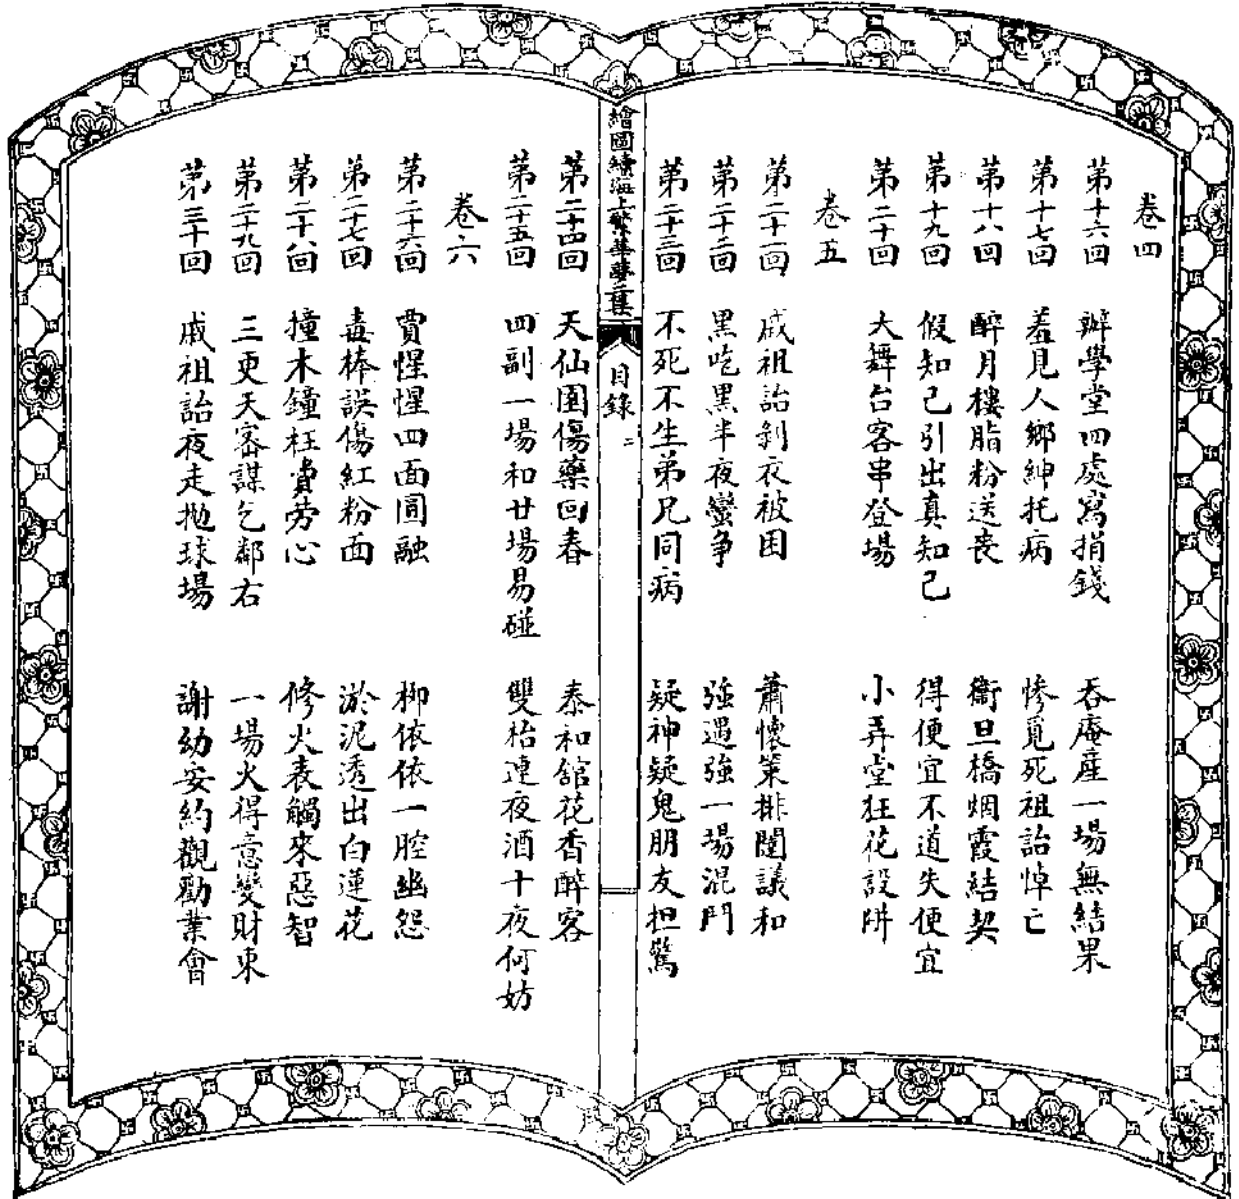 卷四
第十六回 辦學堂四處寫捐錢 吞庵產一場無結果
第十七回 羞見人鄉紳托病 慘覓死祖詒悼亡
第十八回 醉月樓脂粉送喪 衞旦橋烟霞結契
第十九回 假知己引出真知己 得便宜不道失便宜
第二十回 大舞台客串登場 小弄堂狂花設阱
卷五
第二十一回 戚祖詒剝衣被困 蕭懷策排闥議和
第二十二回 黑吃黑半夜蠻爭 強遇強一場混鬥
第二十三回 不死不生弟兄同病 疑神疑鬼朋友担驚
繪圖續海上繁華夢二集 目錄 二
第二十四回 天仙園傷藥回春 泰和館花香醉客
第二十五回 四副一場和廿場易碰 雙枱連夜酒十夜何妨
卷六
第二十六回 賈惺惺四面圓融 柳依依一腔幽怨
第二十七回 毒棒誤傷紅粉面 淤泥透出白蓮花
第二十八回 撞木鐘枉費勞心 修火表觸來惡智
第二十九回 三更天密謀乞鄰右 一場火得意變財東
第三十回 戚祖詒夜走拋球場 謝幼安約觀勸業會